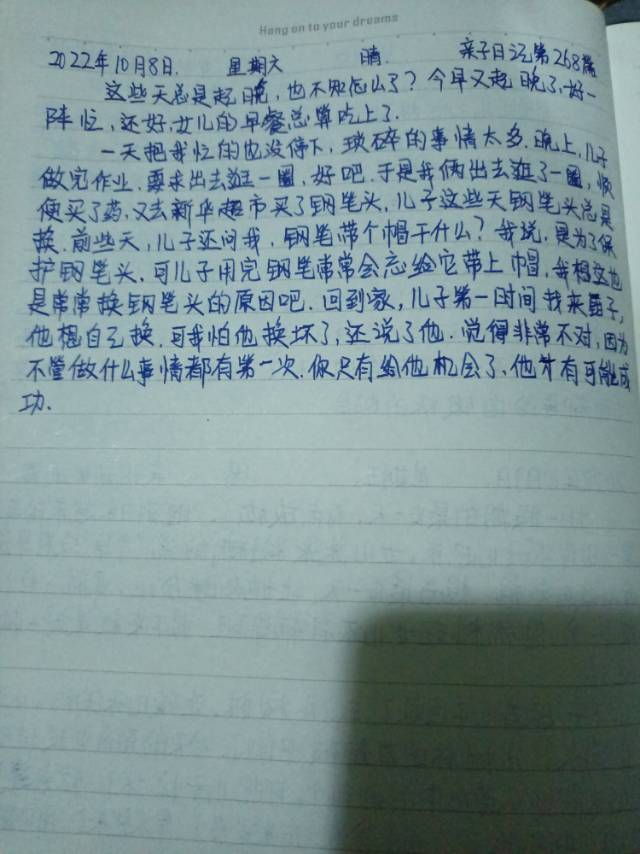 Hang on to your dreams
2022年10月8日. 星期六 晴 亲子日记第268篇
这些天总是起晚,也不知怎么了?今早又起晚了,好一
阵忙,还好,女儿的早餐总算吃上了.
一天把我忙的也没停下,琐碎的事情太多.晚上,儿子
做完作业.要求出去逛一圈,好吧.于是我俩出去逛了一圈,顺
便买了药,又去新华超市买了钢笔头,儿子这些天钢笔头总是
换.前些天,儿子还问我,钢笔带个帽干什么?我说,是为了保
护钢笔头.可儿子用完钢笔常常会忘给它带上帽,我想这也
是常常换钢笔头的原因吧.回到家,儿子第一时间找来钳子,
他想自己换.可我怕他换坏了,还说了他.觉得非常不对,因为
不管做什么事情都有第一次.你只有给他机会了,他才有可能成
功.